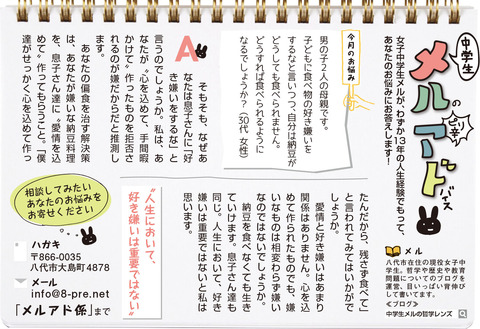 中学生
メルの
ピリ辛
アドバイス
女子中学生メルが、わずか13年の人生経験でもって、
あなたのお悩みにお答えします!
メル
八代市在住の現役女子中
学生。哲学や歴史や教育
問題についてのブログを
運営、目いっぱい背伸び
して書いてます。
≪ブログ≫
中学生メルの哲学レンズ
今月のお悩み
男の子2人の母親です。
子どもに食べ物の好き嫌いを
するなと言いつつ、自分は納豆が
どうしても食べられません。
どうすれば食べられるように
なるでしょうか?(30代 女性)
A
そもそも、なぜあ
なたは息子さんに「好
き嫌いをするな」と
言うのでしょうか。私は、あ
なたが〝心を込めて、手間暇
かけて〟作ったものを拒否さ
れるのが嫌だからだと推測し
ます。
あなたの偏食を治す解決策
は、あなたが嫌いな納豆料理
を、息子さん達に〝愛情を込
めて〟作ってもらうこと。「僕
達がせっかく心を込めて作っ
たんだから、残さず食べて」
と言われてみてはいかがで
しょうか。
愛情と好き嫌いはあまり
関係はありません。心を込
めて作られたものでも、嫌
いなものは相変わらず嫌い
なのではないでしょうか。
納豆を食べなくても生き
ていけます。息子さん達も
同じ。人生において、好き
嫌いは重要ではないと私は
思います。
〝人生において、
好き嫌いは重要ではない〟
相談してみたい
あなたのお悩みを
お寄せください
ハガキ
〒866-0035
八代市大島町4878
メール
info@8-pre.net
「メルアド係」まで